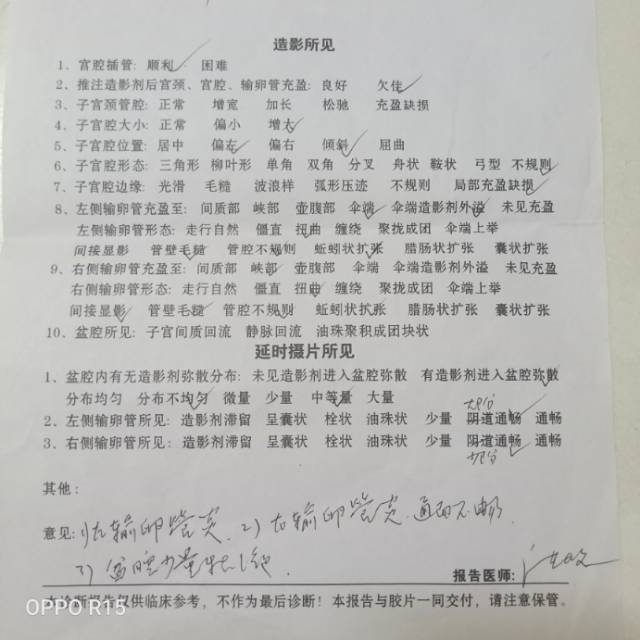 造影所见
1、宫腔插管: 顺利 困难
2、推注造影剂后宫颈、宫腔、输卵管充盈: 良好 欠佳
3、子宫颈管腔: 正常 增宽 加长 松驰 充盈缺损
4、子宫腔大小: 正常 偏小 增大
5、子宫腔位置: 居中 偏左 偏右 倾斜 屈曲
6、子宫腔形态: 三角形 柳叶形 单角 双角 分叉 舟状 鞍状 弓型 不规则
7、子宫腔边缘: 光滑 毛糙 波浪样 弧形压迹 不规则 局部充盈缺损
8、左侧输卵管充盈至: 间质部 峡部 壶腹部 伞端 伞端造影剂外溢 未见充盈
左侧输卵管形态: 走行自然 僵直 扭曲 缠绕 聚拢成团 伞端上举
间接显影 管壁毛糙 管腔不规则 蚯蚓状扩张 腊肠状扩张 囊状扩张
9、右侧输卵管充盈至: 间质部 峡部 壶腹部 伞端 伞端造影剂外溢 未见充盈
右侧输卵管形态: 走行自然 僵直 扭曲 缠绕 聚拢成团 伞端上举
间接显影 管壁毛糙 管腔不规则 蚯蚓状扩张 腊肠状扩张 囊状扩张
10、盆腔所见: 子宫间质回流 静脉回流 油珠聚积成团块状
延时摄片所见
1、盆腔内有无造影剂弥散分布: 未见造影剂进入盆腔弥散 有造影剂进入盆腔弥散
分布均匀 分布不均匀 微量 少量 中等量 大量
2、左侧输卵管所见: 造影剂滞留 呈囊状 栓状 油珠状 少量 阴道通畅 通畅
3、右侧输卵管所见: 造影剂滞留 呈囊状 栓状 油珠状 少量 阴道通畅 通畅
其他:
意见: 1) 左输卵管炎. 2) 右输卵管炎.通而不畅.
3) 盆腔少量粘连.
报告医师:
本诊断报告仅供临床参考，不作为最后诊断！本报告与胶片一同交付，请注意保管。
OPPO R15